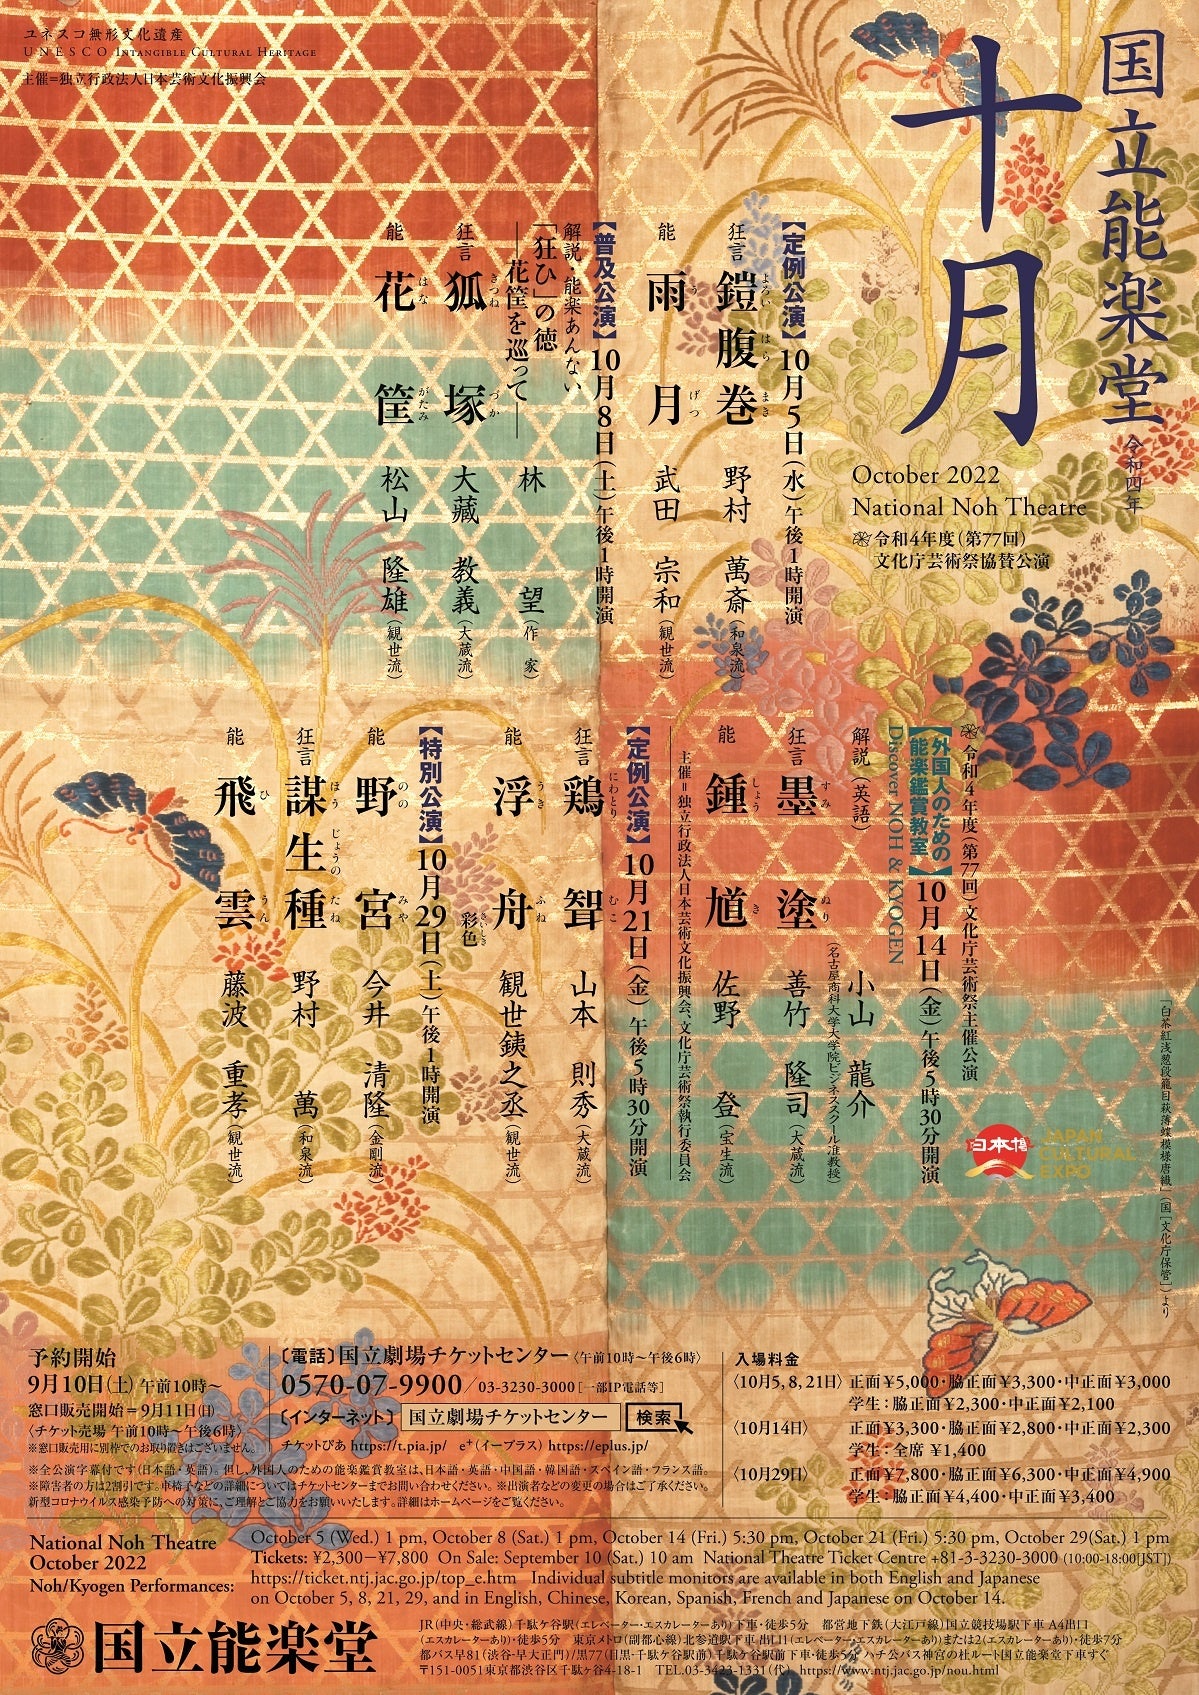 ユネスコ無形文化遺産
UNESCO INTANGIBLE CULTURAL HERITAGE
主催=独立行政法人日本芸術文化振興会
国立能楽堂
令和四年
十月
October 2022
National Noh Theatre
令和4年度(第77回)
文化庁芸術祭協賛公演
【定例公演】10月5日(水)午後1時開演
狂言 鎧腹巻 野村 萬斎(和泉流)
よろい はら まき
能 雨月 武田 宗和(観世流)
う げつ
【普及公演】10月8日(土)午後1時開演
解説・能楽あんない
「狂ひ」の徳
―花筐を巡って― 林 望(作家)
狂言 狐塚 大藏 教義(大蔵流)
きつね づか
能 花筐 松山 隆雄(観世流)
はな がたみ
令和4年度(第77回)文化庁芸術祭主催公演
【外国人のための
能楽鑑賞教室】10月14日(金)午後5時30分開演
Discover NOH & KYOGEN
解説(英語) 小山 龍介
(名古屋商科大学大学院ビジネススクール准教授)
狂言 墨塗 善竹 隆司(大蔵流)
すみ ぬり
能 鍾馗 佐野 登(宝生流)
しょう き
主催=独立行政法人日本芸術文化振興会、文化庁芸術祭執行委員会
【定例公演】10月21日(金)午後5時30分開演
狂言 鶏聟 山本 則秀(大蔵流)
にわとり むこ
能 浮舟 観世銕之丞(観世流)
うき ふね
彩色
さいしき
【特別公演】10月29日(土)午後1時開演
能 野宮 今井 清隆(金剛流)
のの みや
狂言 謀生種 野村 萬(和泉流)
ほう じょうの たね
能 飛雲 藤波 重孝(観世流)
ひ うん
日本博
JAPAN
CULTURAL
EXPO
「白茶紅浅葱段籠目萩薄蝶模様唐織」(国[文化庁保管])より
予約開始
9月10日(土)午前10時〜
窓口販売開始=9月11日(日)
〈チケット売場 午前10時〜午後6時〉
※窓口販売用に別枠でのお取り置きはございません。
〔電話〕国立劇場チケットセンター〈午前10時〜午後6時〉
0570-07-9900/03-3230-3000[一部IP電話等]
〔インターネット〕 国立劇場チケットセンター 検索
チケットぴあ https://t.pia.jp/ e+(イープラス) https://eplus.jp/
※全公演字幕付です(日本語・英語)。但し、外国人のための能楽鑑賞教室は、日本語・英語・中国語・韓国語・スペイン語・フランス語。
※障害者の方は2割引です。車椅子などの詳細についてはチケットセンターまでお問い合わせください。※出演者などの変更の場合はご了承ください。
新型コロナウイルス感染予防への対策に、ご理解とご協力をお願いいたします。詳細はホームページをご覧ください。
入場料金
〈10月5,8,21日〉正面¥5,000・脇正面¥3,300・中正面¥3,000
学生:脇正面¥2,300・中正面¥2,100
〈10月14日〉 正面¥3,300・脇正面¥2,800・中正面¥2,300
学生:全席 ¥1,400
〈10月29日〉 正面¥7,800・脇正面¥6,300・中正面¥4,900
学生:脇正面¥4,400・中正面¥3,400
National Noh Theatre
October 2022
Noh/Kyogen Performances:
October 5 (Wed.) 1 pm, October 8 (Sat.) 1 pm, October 14 (Fri.) 5:30 pm, October 21 (Fri.) 5:30 pm, October 29(Sat.) 1 pm
Tickets: ¥2,300—¥7,800 On Sale: September 10 (Sat.) 10 am National Theatre Ticket Centre +81-3-3230-3000 (10:00-18:00[JST])
https://ticket.ntj.jac.go.jp/top_e.htm Individual subtitle monitors are available in both English and Japanese
on October 5, 8, 21, 29, and in English, Chinese, Korean, Spanish, French and Japanese on October 14.
国立能楽堂
JR(中央・総武線)千駄ケ谷駅(エレベーター・エスカレーターあり)下車・徒歩5分 都営地下鉄(大江戸線)国立競技場駅下車 A4出口
(エスカレーターあり)・徒歩5分 東京メトロ(副都心線)北参道駅下車 出口1(エレベーター・エスカレーターあり)または2(エスカレーターあり)・徒歩7分
都バス早81(渋谷-早大正門)/黒77(目黒-千駄ケ谷駅前)千駄ケ谷駅前下車・徒歩5分 ハチ公バス神宮の杜ルート国立能楽堂下車すぐ
〒151-0051東京都渋谷区千駄ケ谷4-18-1 TEL.03-3423-1331(代) https://www.ntj.jac.go.jp/nou.html